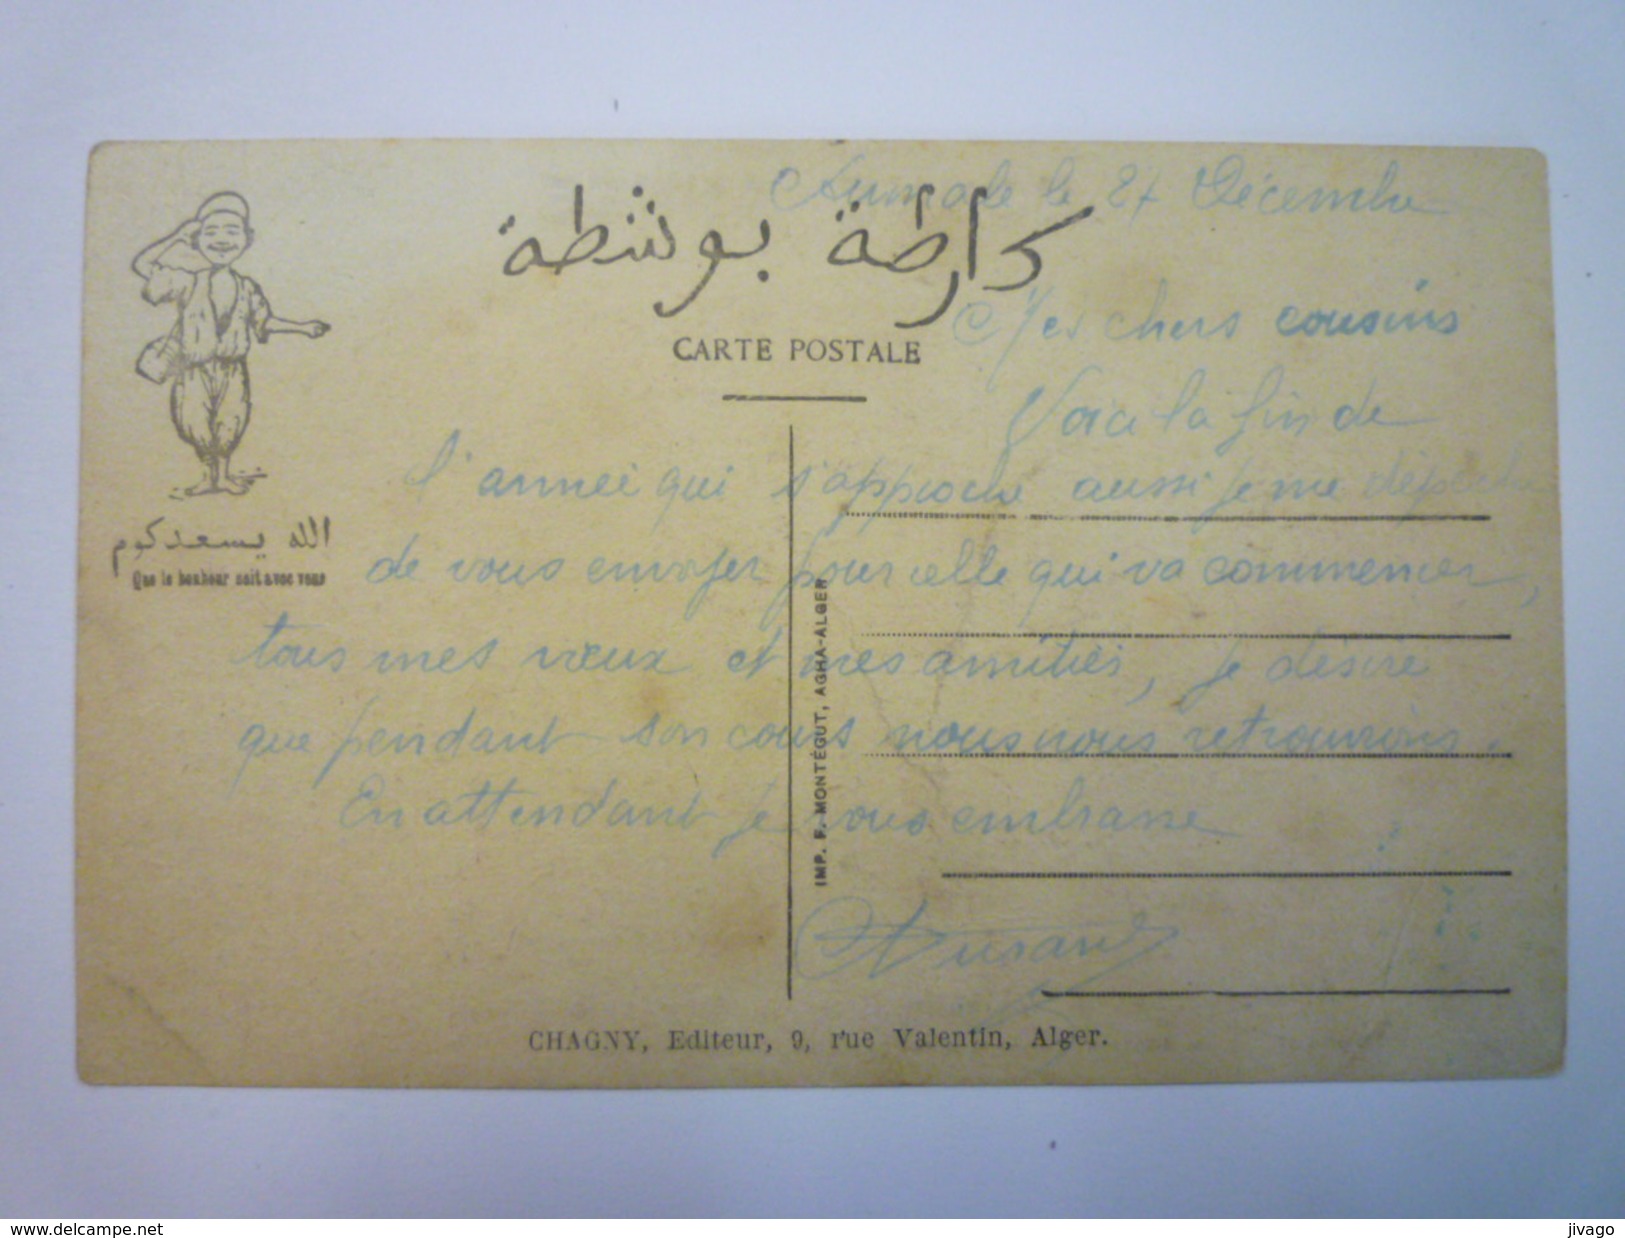 Aumale le 27 Décembre
كارطة بوسطة
CARTE POSTALE
Mes chers cousins
Voici la fin de
l'année qui s'approche aussi je me dépèche
de vous envoyer pour celle qui va commencer,
tous mes vœux et mes amitiés, je désire
que pendant son cours nous nous retrouvions.
En attendant je vous embrasse
الله يسعدكوم
Que le bonheur soit avec vous
IMP. F. MONTÉGUT, AGHA-ALGER
CHAGNY, Editeur, 9, rue Valentin, Alger.
www.delcampe.net
jivago